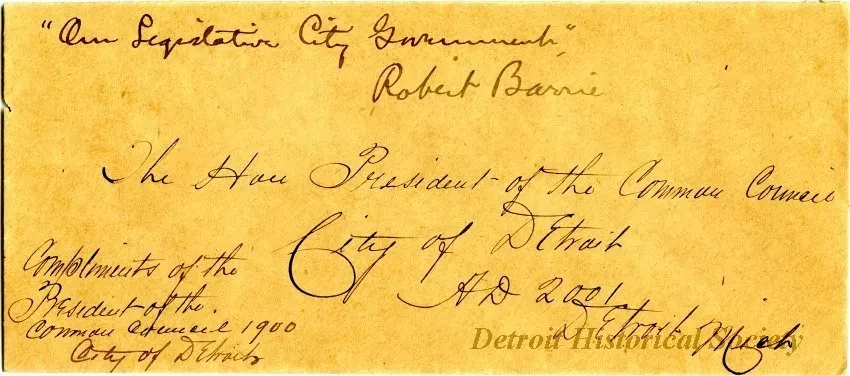 "Our Legislative City Government"
Robert Barrie
The Hon President of the Common Council
City of Detroit
AD 2001
Detroit Mich
Compliments of the
President of the
Common Council 1900
City of Detroit
Detroit Historical Society